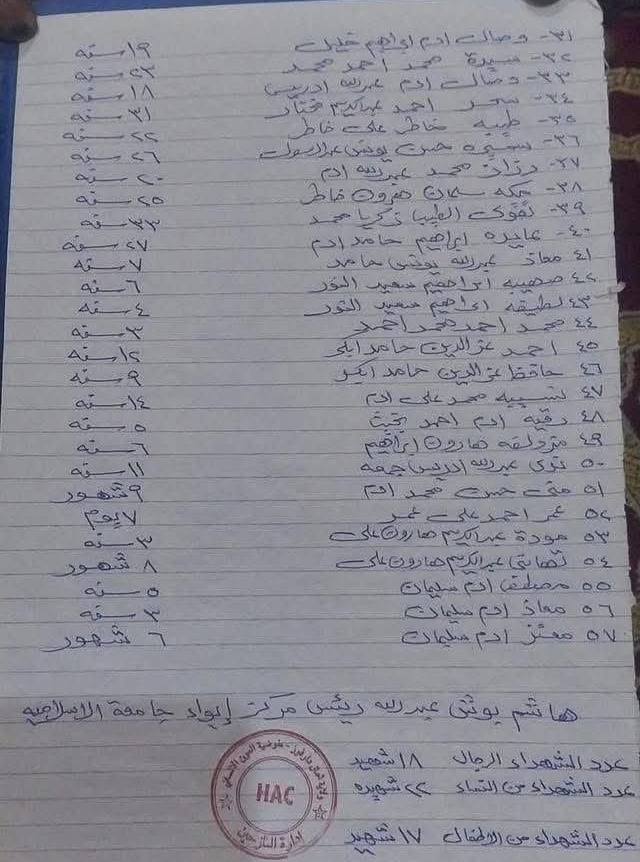 ٣١- وصال ادم ابراهيم خليل ١٩ سنه
٣٢- سيدة محمد احمد محمد ٢٣ سنه
٣٣- وصال ادم عبدالله ادريس ١٨ سنه
٣٤- سحر احمد عبدالكريم مختار ٣١ سنه
٣٥- طيبه خاطر على خاطر ٢٢ سنه
٣٦- سميره حسن يونس عبدالرسول ٢٦ سنه
٣٧- رزان محمد عبدالله ادم ٢٠ سنه
٣٨- مكه سليمان هرون خاطر ٢٥ سنه
٣٩- تقوى الطيب زكريا محمد ٣٣ سنه
٤٠- عايده ابراهيم حامد ادم ٢٧ سنه
٤١ معاذ عبدالله يونس حامد ٧ سنه
٤٢ صهيبه ابراهيم سعيد النور ٦ سنه
٤٣ لطيفه ابراهيم سعيد النور ٤ سنه
٤٤ محمد احمد محمد احمد ٣ سنه
٤٥ احمد عزالدين حامد ابكر ١٢ سنه
٤٦ حافظ عزالدين حامد ابكر ٩ سنه
٤٧ نسيبه محمد على ادم ١٤ سنه
٤٨ رقيه ادم احمد بخيت ٥ سنه
٤٩ مزدلفه هارون إبراهيم ٦ سنه
٥٠ عبدالله ادريس جمعه ١١ سنه
٥١ منى حسن محمد ادم ٩ شهور
٥٢ عمر احمد على عمر ٧ يوم
٥٣ مودة عبدالكريم هارون على ٣ سنه
٥٤ تهانى عبدالكريم هارون على ٨ شهور
٥٥ مصطفى ادم سليمان ٥ سنه
٥٦ معاذ ادم سليمان ٣ سنه
٥٧ معتز ادم سليمان ٦ شهور
هاشم يونس عبدالله رئيس مركز إيواء جامعة الاسلاميه
عدد الشهداء الرجال ١٨ شهيد
عدد الشهداء من النساء ٢٢ شهيده
عدد الشهداء من الاطفال ١٧ شهيد
ولاية شمال دارفور - مفوضية العون الإنساني
HAC
إدارة النازحين